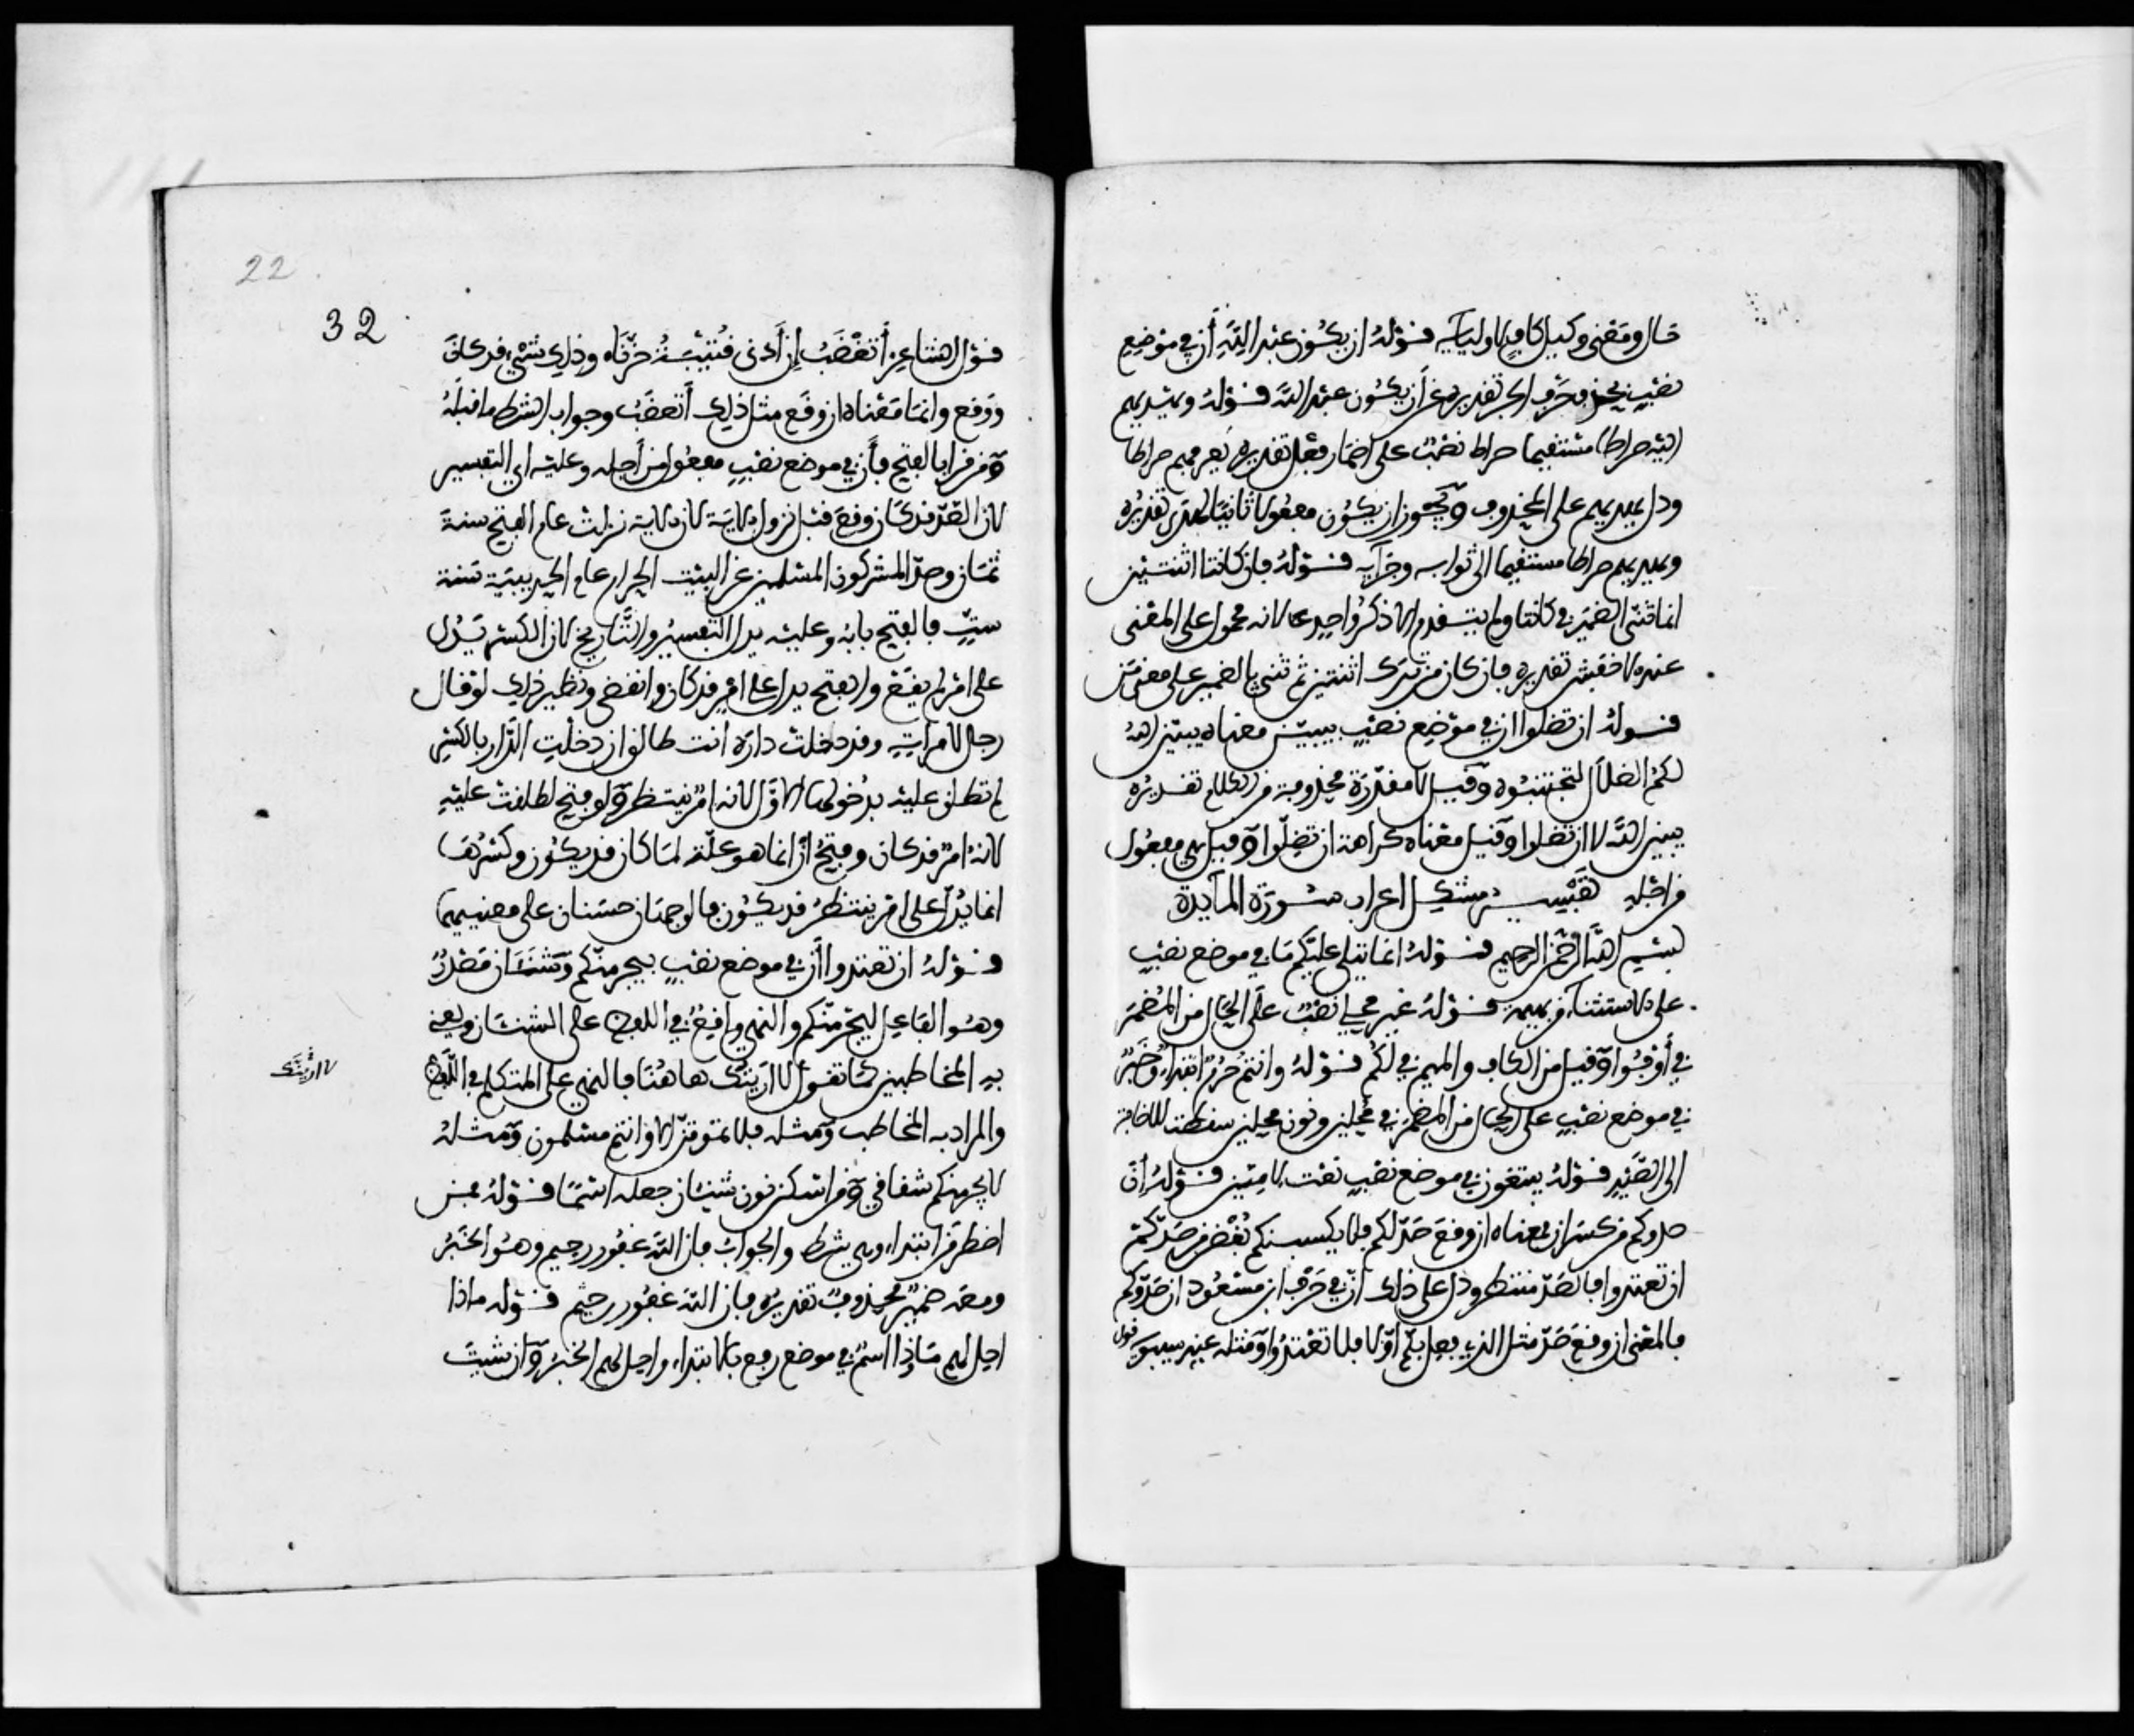 حال ومعنى وكيل كاف لاوليايه قوله ان يكون عبدا لله أن في موضع
نصب بحذف حرف الجر تقديره عن أن يكون عبدا لله قوله ويهديهم
اليه صراطا مستقيما صراط نصب على اضمار فعل تقديره يعرفهم صراطا
ودل يهديهم على المحذوف ويجوز ان يكون مفعولا ثانيا ليهدي تقديره
ويهديهم صراطا مستقيما الى ثوابه وجزايه قوله فإن كانتا اثنتين
انما ثنى الضمير في كانتا ولم يتقدم الا ذكر واحدة لانه محمول على المعنى
عند الاخفش تقديره فان كان من ترك اثنتين ثم ثنى الضمير على معنى من
قوله ان تضلوا ان في موضع نصب بيبين معناه يبين الله
لكم الضلال لتجتنبوه وقيل لا مقدرة محذوفة من الكلام تقديره
يبين الله لا ان تضلوا وقيل معناه كراهة ان تضلوا وقيل هي مفعول
من اجله تفسير مشكل اعراب سورة المايدة
بسم الله الرحمن الرحيم قوله الا ما يتلى عليكم ما في موضع نصب
على الاستثناء من بهيمة قوله غير محلي نصب على الحال من المضمر
في أوفوا وقيل من الكاف والميم في لكم قوله وانتم حرم ابتداء وخبر
في موضع نصب على الحال من المضمر في محلين ونون محلين سقطت للاضافة
الى الصيد قوله يبتغون في موضع نصب نعت لامين قوله أن
صدوكم من كسر ان فمعناه ان وقع صد لكم فلا يكسبنكم بغض من صدكم
ان تعتدوا فالصد منتظر ودل على ذلك أن في حرف ابن مسعود ان صدوكم
فالمعنى ان وقع صد مثل الذي فعل بكم اولا فلا تعتدوا ومثله عند سيبويه قول
22
32
قول الشاعر أتغضب إن أذنى قتيبة حزتاه وذلك شيء قد كان
ووقع وانما معناه ان وقع مثل ذلك أتغضب وجواب الشرط ما قبله
ومن قرا بالفتح فأن في موضع نصب مفعول من أجله وعليه اتى التفسير
لان الصد قد كان وقع قبل نزول الاية لان الاية نزلت عام الفتح سنة
ثمان وصد المشركون المسلمين عن البيت الحرام عام الحديبية سنة
ست فالفتح بابه وعليه يدل التفسير والتاريخ لان الكسر يدل
على امر لم يقع والفتح يدل على امر قد كان وانقضى ونظير ذلك لو قال
رجل لامراته وقد دخلت داره انت طالق ان دخلت الدار بالكسر
لم تطلق عليه بدخولها الاول لانه امر ينتظر ولو فتح لطلقت عليه
لانه امر قد كان وفتح أن انما هو علة لما كان قد يكون وكسرها
انما يدل على امر ينتظر قد يكون فالوجهان حسنان على معنييهما
قوله ان تعتدوا أن في موضع نصب بيجرمنكم وشنئان مصدر
وهو الفاعل ليجرمنكم والنهي واقع في اللفظ على الشنئان ويعنى
به المخاطبين كما تقول لا اريتك هاهنا فالنهي على المتكلم في اللفظ
لا اريتك
والمراد به المخاطب ومثله فلا تموتن الا وانتم مسلمون ومثله
لا يجرمنكم شقاقي ومن اسكن نون شنئان جعله اسما قوله فمن
اضطر من ابتداء وهي شرط والجواب فان الله غفور رحيم وهو الخبر
ومعه ضمير محذوف تقديره فان الله غفور رحيم قوله ماذا
احل لهم ماذا اسم في موضع رفع بالابتداء واحل لهم الخبر وان شيت